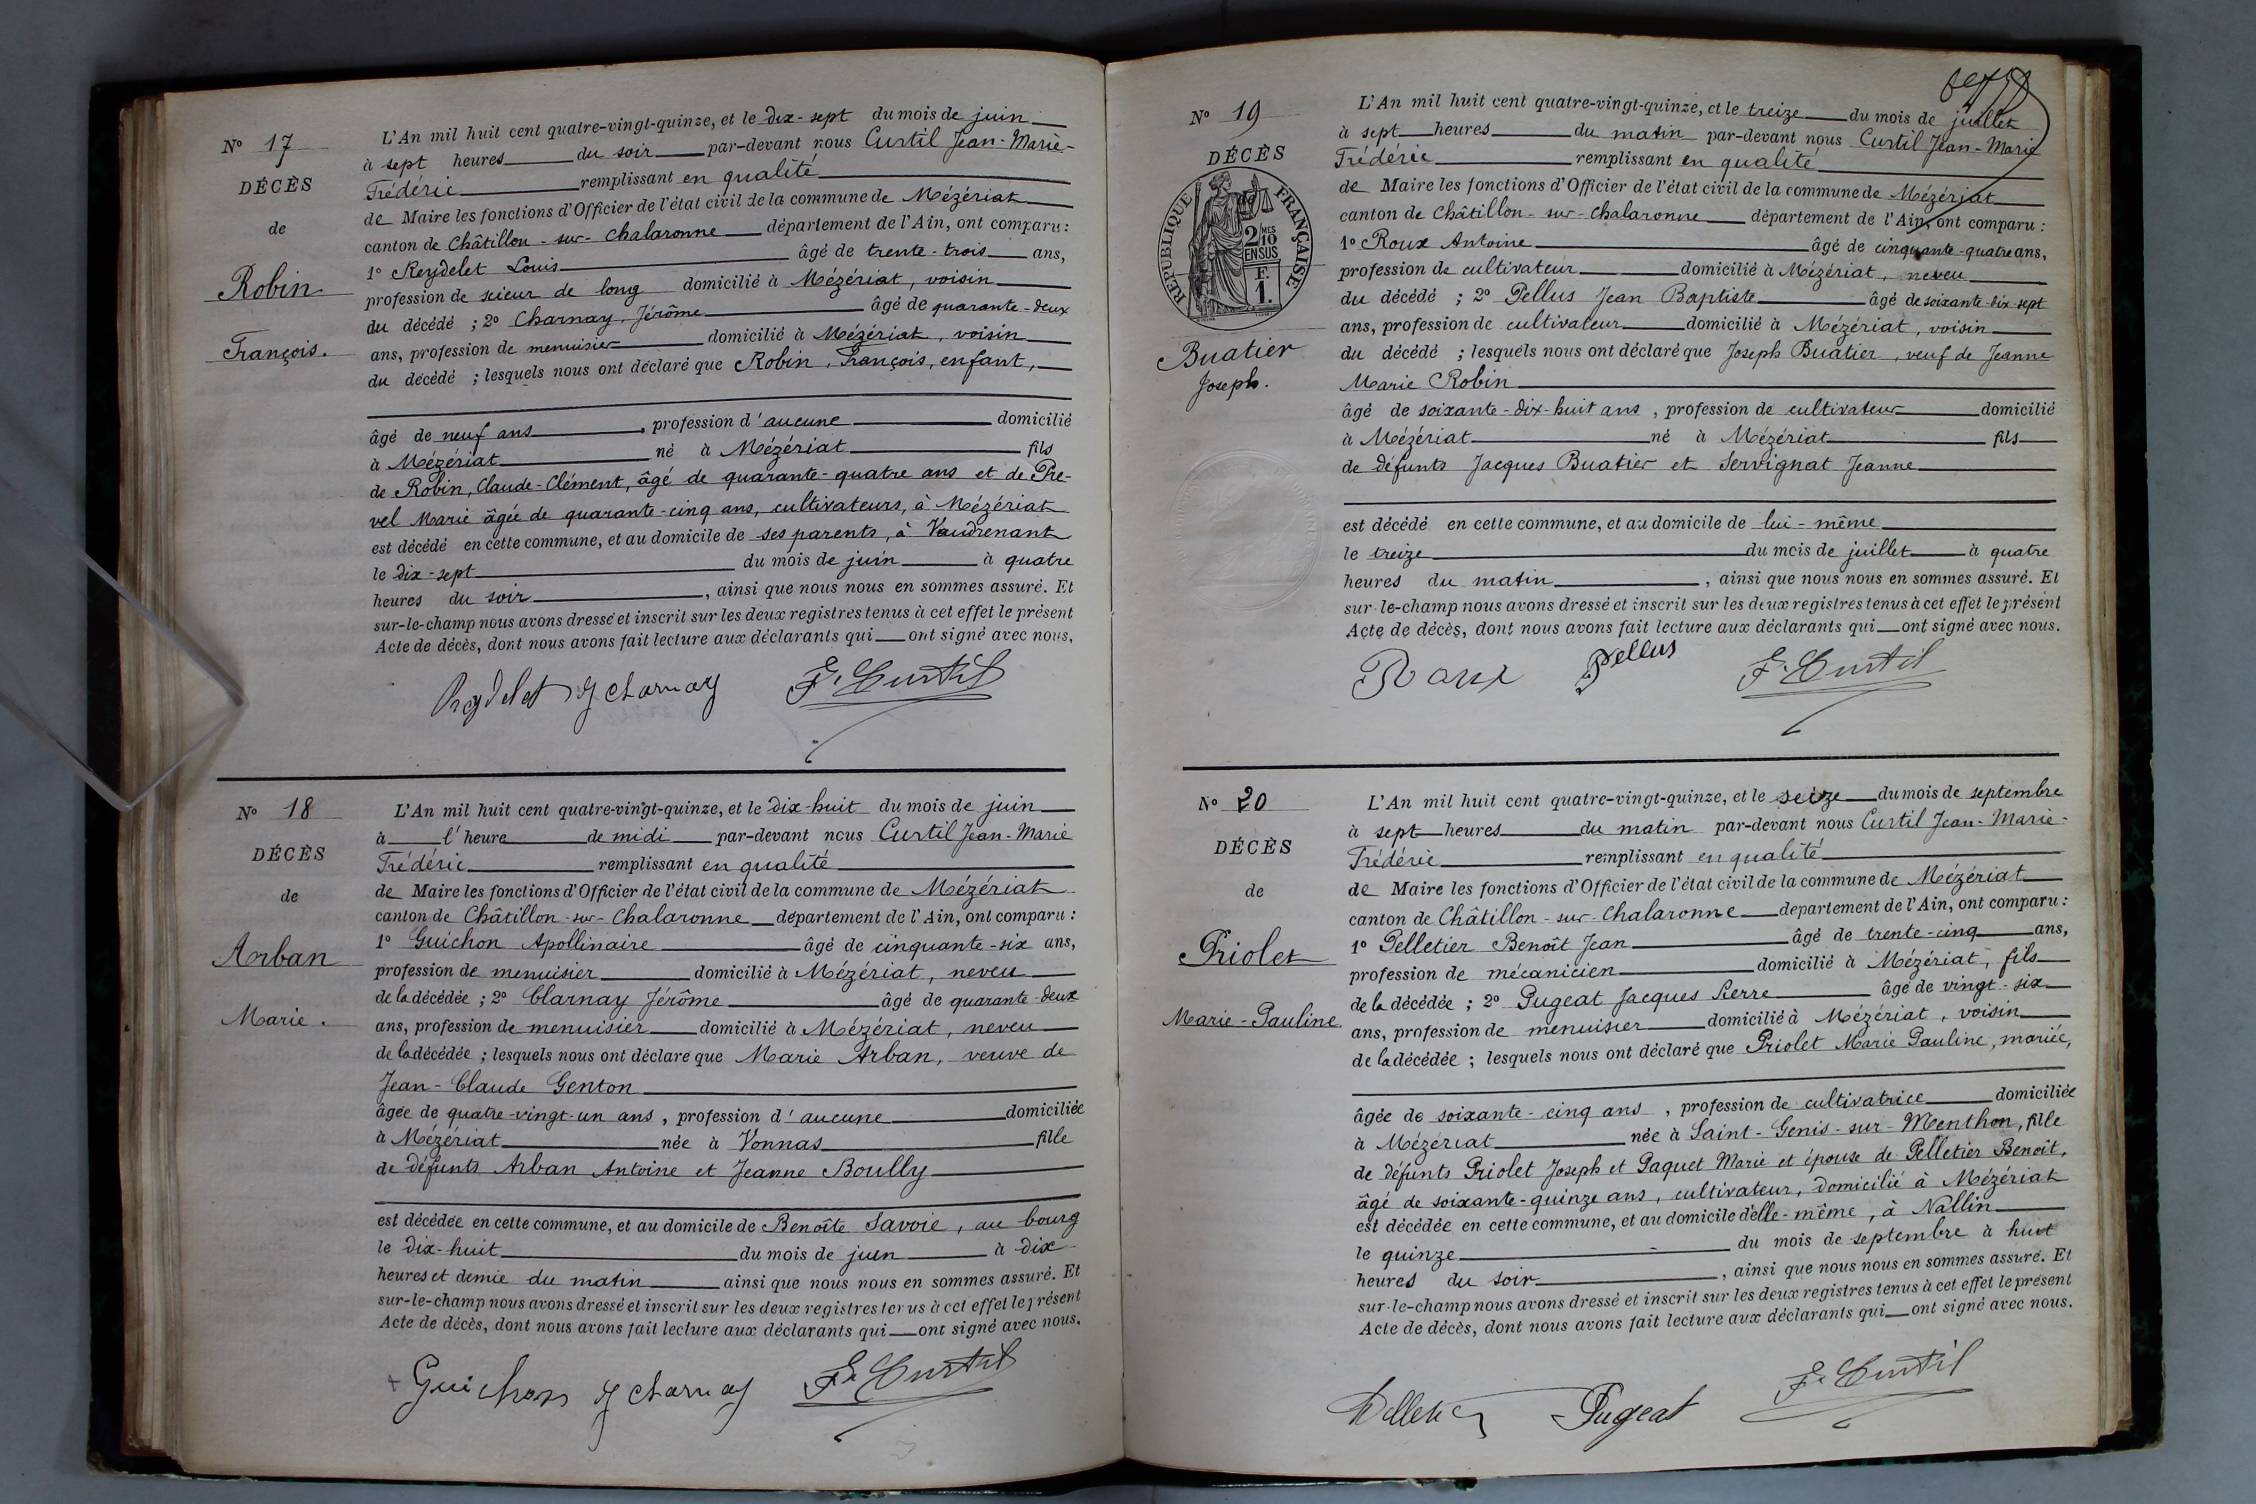 N° 17
DÉCÈS
de
Robin
François.
L'An mil huit cent quatre-vingt-quinze, et le dix-sept du mois de juin
à sept heures du soir par-devant nous Curtil Jean-Marie-
Frédéric remplissant en qualité
de Maire les fonctions d'Officier de l'état civil de la commune de Mézériat
canton de Châtillon-sur-Chalaronne département de l'Ain, ont comparu :
1° Reydelet Louis âgé de trente-trois ans,
profession de scieur de long domicilié à Mézériat, voisin
du décédé ; 2° Charnay, Jérôme âgé de quarante-deux
ans, profession de menuisier domicilié à Mézériat, voisin
du décédé ; lesquels nous ont déclaré que Robin, François, enfant,
âgé de neuf ans, profession d'aucune domicilié
à Mézériat né à Mézériat fils
de Robin, Claude-Clément, âgé de quarante-quatre ans et de Pre-
vel Marie âgée de quarante-cinq ans, cultivateurs, à Mézériat
est décédé en cette commune, et au domicile de ses parents, à Vaudrenant
le dix-sept du mois de juin à quatre
heures du soir, ainsi que nous nous en sommes assuré. Et
sur-le-champ nous avons dressé et inscrit sur les deux registres tenus à cet effet le présent
Acte de décès, dont nous avons fait lecture aux déclarants qui ont signé avec nous.
Reydelet J Charnay F. Curtil
N° 18
DÉCÈS
de
Arban
Marie.
L'An mil huit cent quatre-vingt-quinze, et le dix-huit du mois de juin
à l'heure de midi par-devant nous Curtil Jean-Marie
Frédéric remplissant en qualité
de Maire les fonctions d'Officier de l'état civil de la commune de Mézériat
canton de Châtillon-sur-Chalaronne département de l'Ain, ont comparu :
1° Guichon Apollinaire âgé de cinquante-six ans,
profession de menuisier domicilié à Mézériat, neveu
de la décédée ; 2° Charnay Jérôme âgé de quarante-deux
ans, profession de menuisier domicilié à Mézériat, neveu
de la décédée ; lesquels nous ont déclaré que Marie Arban, veuve de
Jean-Claude Genton
âgée de quatre-vingt-un ans, profession d'aucune domiciliée
à Mézériat née à Vonnas fille
de défunts Arban Antoine et Jeanne Boully
est décédée en cette commune, et au domicile de Benoîte Savoie, au bourg
le dix-huit du mois de juin à dix
heures et demie du matin ainsi que nous nous en sommes assuré. Et
sur-le-champ nous avons dressé et inscrit sur les deux registres tenus à cet effet le présent
Acte de décès, dont nous avons fait lecture aux déclarants qui ont signé avec nous.
Guichon J Charnay F. Curtil
N° 19
DÉCÈS
RÉPUBLIQUE FRANÇAISE
2/10 MES
EN SUS
F.
1.
Buatier
Joseph.
L'An mil huit cent quatre-vingt-quinze, et le treize du mois de juillet
à sept heures du matin par-devant nous Curtil Jean-Marie
Frédéric remplissant en qualité
de Maire les fonctions d'Officier de l'état civil de la commune de Mézériat
canton de Châtillon-sur-Chalaronne département de l'Ain, ont comparu :
1° Roux Antoine âgé de cinquante-quatre ans,
profession de cultivateur domicilié à Mézériat, neveu
du décédé ; 2° Pellus Jean Baptiste âgé de soixante-dix-sept
ans, profession de cultivateur domicilié à Mézériat, voisin
du décédé ; lesquels nous ont déclaré que Joseph Buatier, veuf de Jeanne
Marie Robin
âgé de soixante-dix-huit ans, profession de cultivateur domicilié
à Mézériat né à Mézériat fils
de défunts Jacques Buatier et Servignat Jeanne
est décédé en cette commune, et au domicile de lui-même
le treize du mois de juillet à quatre
heures du matin, ainsi que nous nous en sommes assuré. Et
sur-le-champ nous avons dressé et inscrit sur les deux registres tenus à cet effet le présent
Acte de décès, dont nous avons fait lecture aux déclarants qui ont signé avec nous.
Roux Pellus F. Curtil
N° 20
DÉCÈS
de
Priolet
Marie-Pauline
L'An mil huit cent quatre-vingt-quinze, et le seize du mois de septembre
à sept heures du matin par-devant nous Curtil Jean-Marie-
Frédéric remplissant en qualité
de Maire les fonctions d'Officier de l'état civil de la commune de Mézériat
canton de Châtillon-sur-Chalaronne département de l'Ain, ont comparu :
1° Pelletier Benoît Jean âgé de trente-cinq ans,
profession de mécanicien domicilié à Mézériat, fils
de la décédée ; 2° Pugeat Jacques Pierre âgé de vingt-six
ans, profession de menuisier domicilié à Mézériat, voisin
de la décédée ; lesquels nous ont déclaré que Priolet Marie Pauline, mariée,
âgée de soixante-cinq ans, profession de cultivatrice domiciliée
à Mézériat née à Saint-Genis-sur-Menthon, fille
de défunts Priolet Joseph et Paquet Marie et épouse de Pelletier Benoît,
âgé de soixante-quinze ans, cultivateur, domicilié à Mézériat
est décédée en cette commune, et au domicile d'elle-même, à Nallin
le quinze du mois de septembre à huit
heures du soir, ainsi que nous nous en sommes assuré. Et
sur-le-champ nous avons dressé et inscrit sur les deux registres tenus à cet effet le présent
Acte de décès, dont nous avons fait lecture aux déclarants qui ont signé avec nous.
Pelletier Pugeat F. Curtil